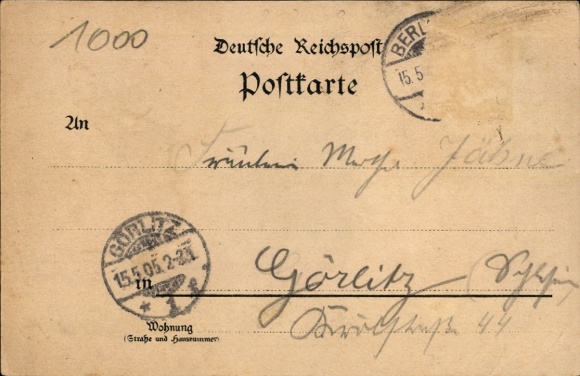 1000
Deutsche Reichspost
Postkarte
BERL
15.5
An
Fräulein Martha Jähne
GÖRLITZ
15.5.05.2-3N
* 1 f.
in Görlitz (Schlesien)
44
Wohnung
(Straße und Hausnummer)